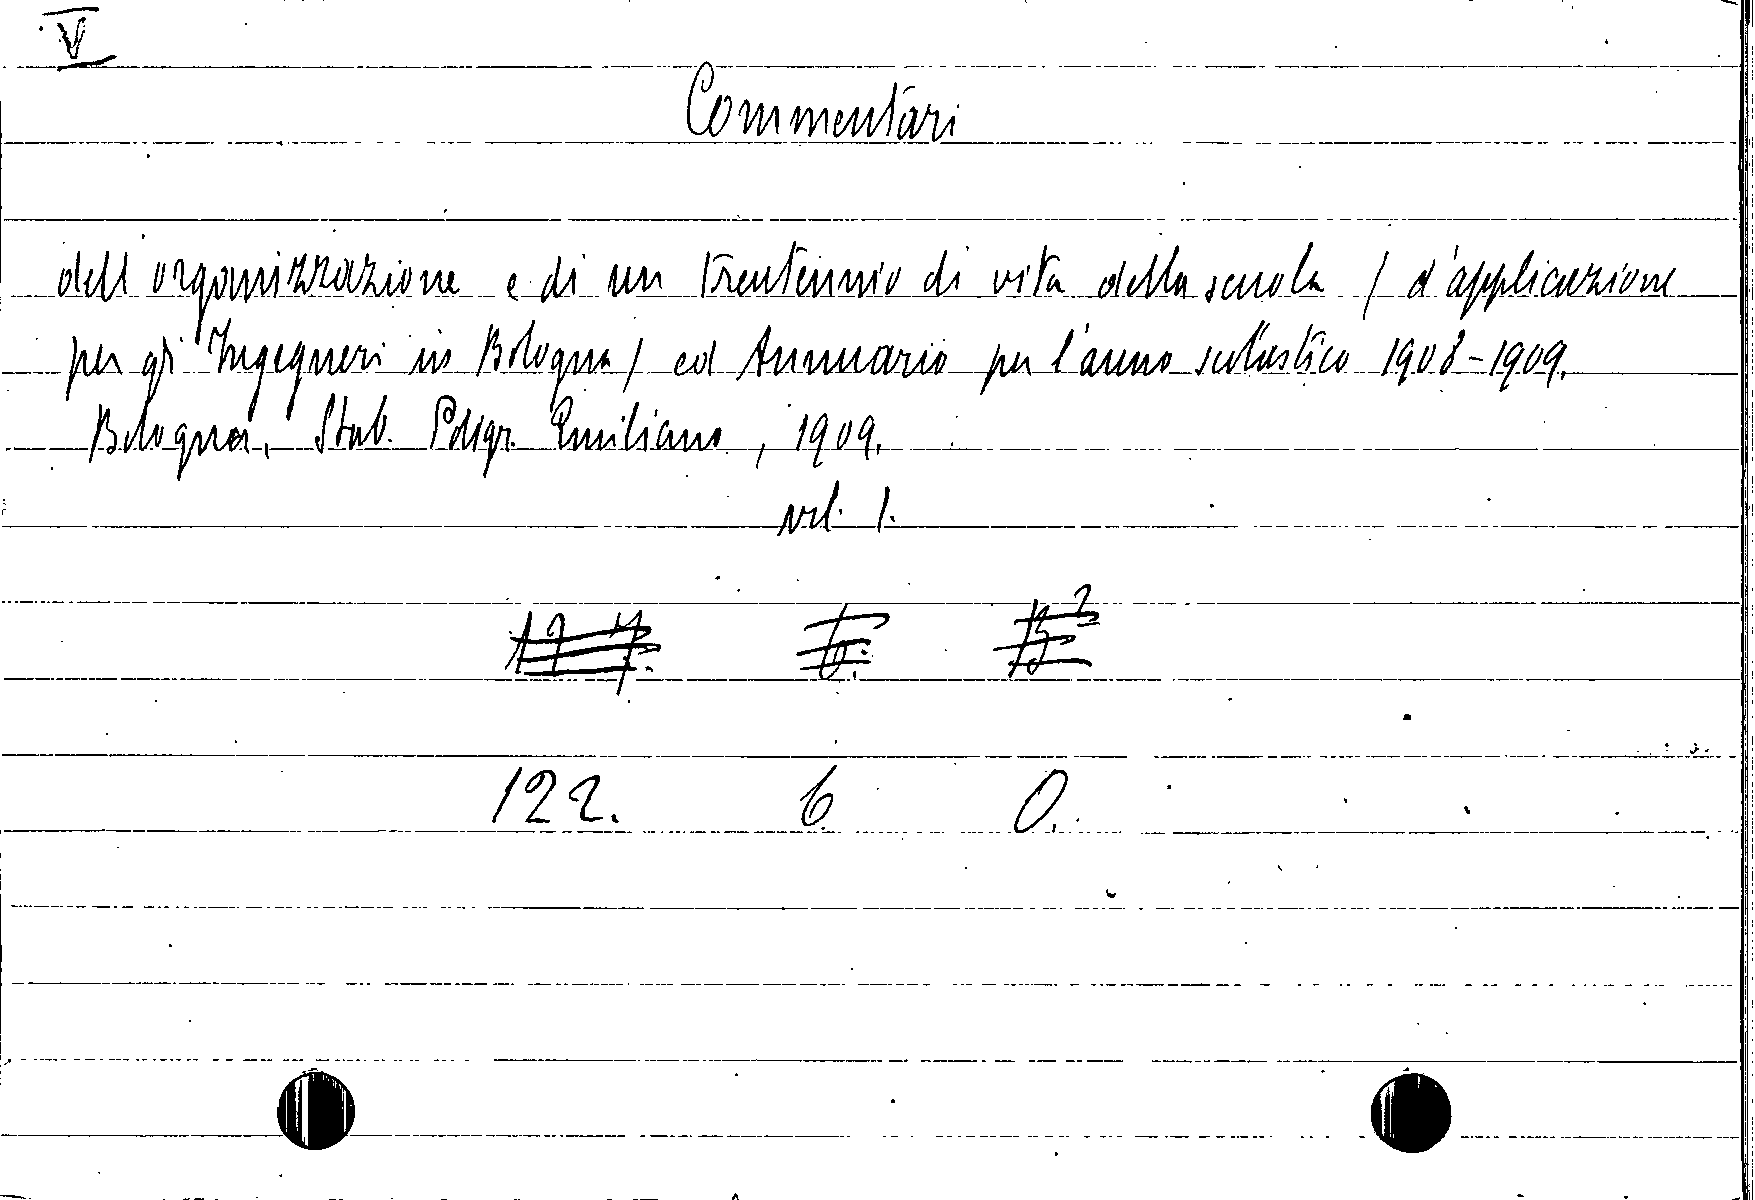 V
Commentari
dell'organizzazione e di un trentennio di vita della scuola / d'applicazione
per gl' Ingegneri in Bologna / ed Annuario per l'anno scolastico 1908-1909.
Bologna, Stab. Poligr. Emiliano, 1909.
vol. 1.
122. 6 O.